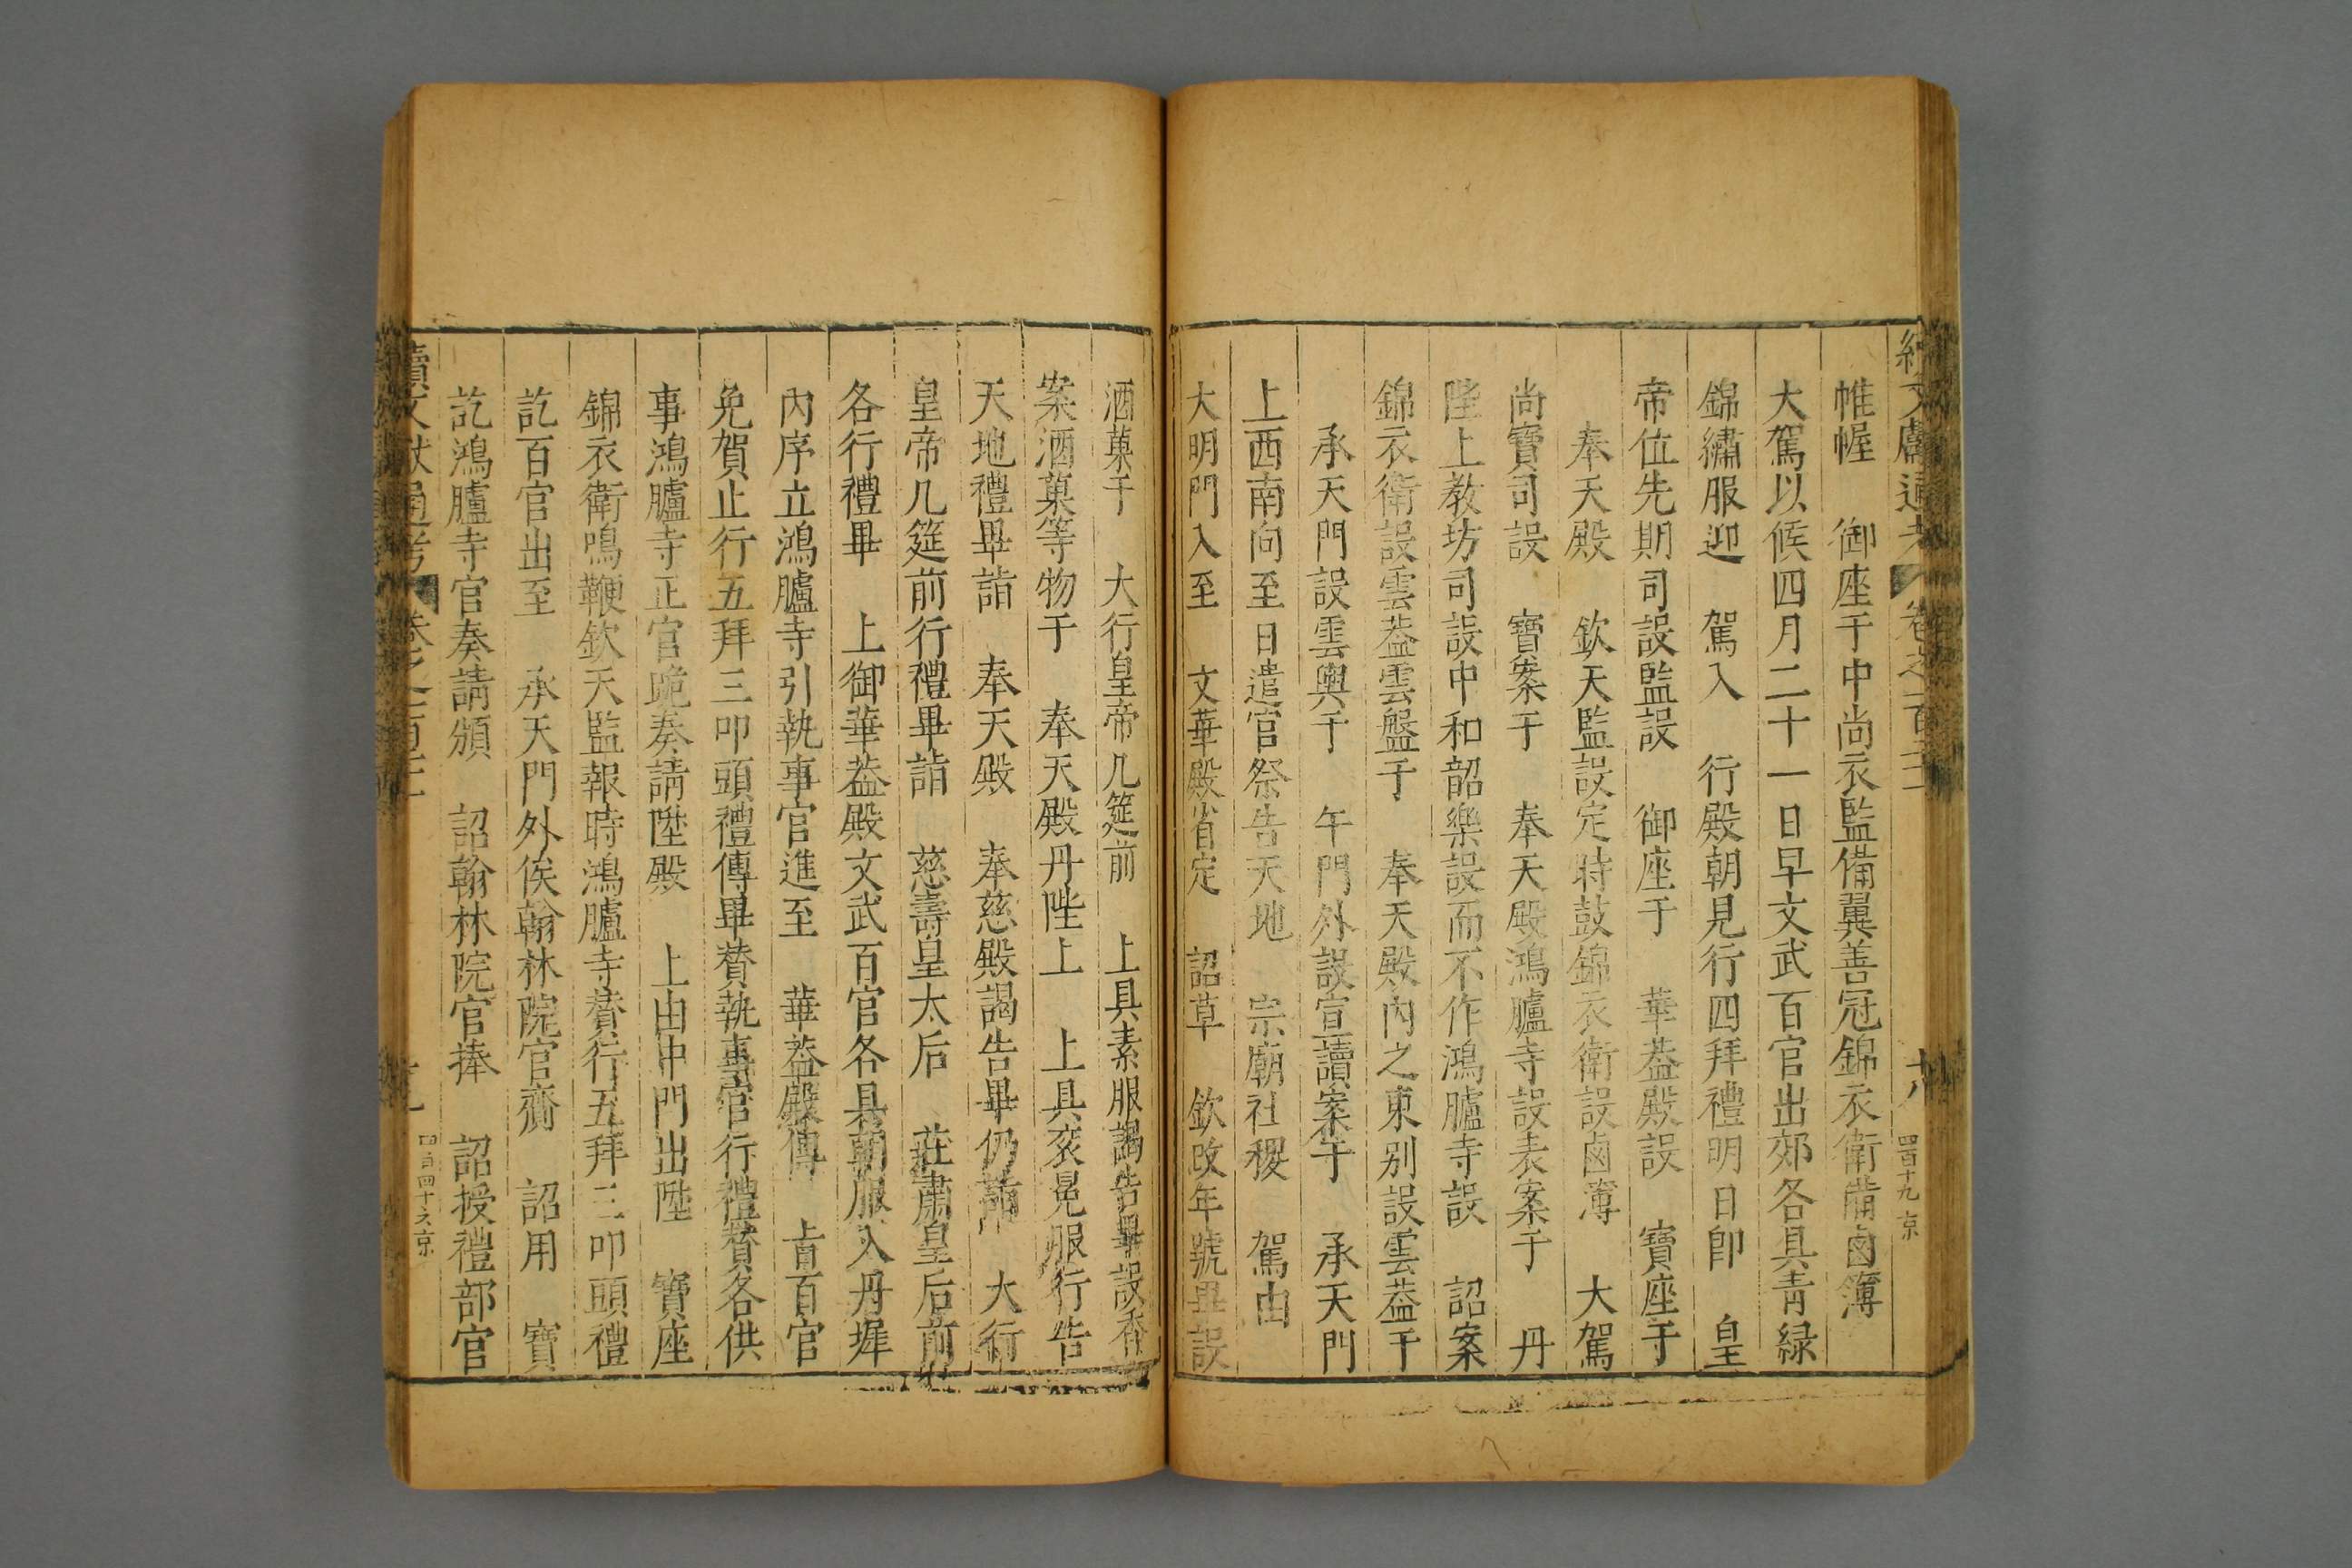 續文獻通考 卷之百二 六 四百十九 京
帷幄 御座于中尚衣監備翼善冠錦衣衛備鹵簿
大駕以候四月二十一日早文武百官出郊各具青緑
錦繡服迎 駕入 行殿朝見行四拜禮明日即 皇
帝位先期司設監設 御座于 華葢殿設 寶座于
奉天殿 欽天監設定時鼓錦衣衛設鹵簿 大駕
尚寶司設 寶案于 奉天殿鴻臚寺設表案于 丹
陛上教坊司設中和韶樂設而不作鴻臚寺設 詔案
錦衣衛設雲葢雲盤于 奉天殿內之東别設雲葢于
承天門設雲輿于 午門外設宣讀案于 承天門
上西南向至日遣官祭告天地 宗廟社稷 駕由
大明門入至 文華殿省定 詔草 欽改年號畢設
酒菓于 大行皇帝几筵前 上具素服謁告畢設香
案酒菓等物于 奉天殿丹陛上 上具衮冕服行告
天地禮畢詣 奉天殿 奉慈殿謁告畢仍詣 大行
皇帝几筵前行禮畢詣 慈壽皇太后 莊肅皇后前
各行禮畢 上御華葢殿文武百官各具朝服入丹墀
內序立鴻臚寺引執事官進至 華葢殿傳 旨百官
免賀止行五拜三叩頭禮傳畢贊執事官行禮贊各供
事鴻臚寺正官跪奏請陞殿 上由中門出陞 寶座
錦衣衛鳴鞭欽天監報時鴻臚寺贊行五拜三叩頭禮
訖百官出至 承天門外俟翰林院官齎 詔用 寶
訖鴻臚寺官奏請頒 詔翰林院官捧 詔授禮部官
續文獻通考 卷之百 四百四十六 京